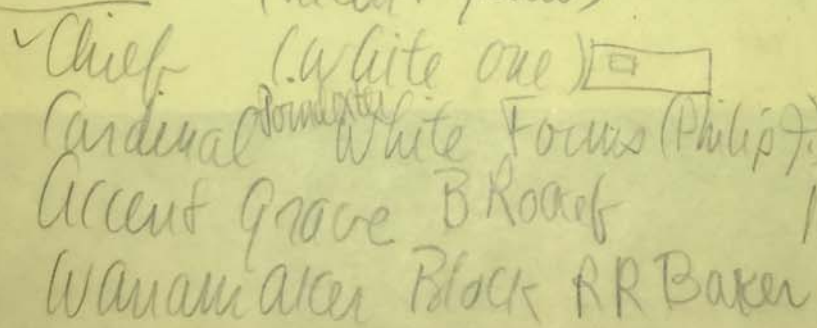 ✓ Chief (White one)
Cardinal Poindexter White Forms (Philip J.
Accent Grave B Rocief
Wanamaker Block RR Baker